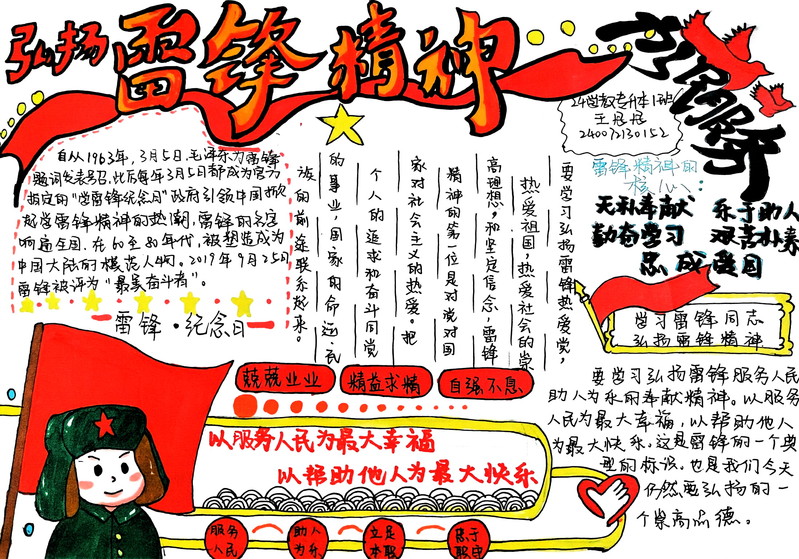 弘扬 雷锋精神
自从1963年，3月5日，毛泽东为雷锋
题词发表号召，此后每年3月5日都成为官方
指定的"学雷锋纪念日"政府引领中国掀
起学雷锋精神的热潮，雷锋的名字
响遍全国，在60至80年代，被塑造成为
中国大陆的模范人物。2019年9月25日
雷锋被评为"最美奋斗者"。
雷锋·纪念日
要学习弘扬雷锋热爱党，
热爱祖国，热爱社会的崇
高理想，和坚定信念，雷锋
精神的第一位是对党对国
家对社会主义的热爱。把
个人的追求和奋斗同党
的事业，国家的命运，民
族的前途联系起来。
24学教专升本1班
240072130152
雷锋精神的
核心：
无私奉献 乐于助人
勤奋学习 艰苦朴素
忠诚爱国
学习雷锋同志
弘扬雷锋精神
兢兢业业 精益求精 自强不息
以服务人民为最大幸福
以帮助他人为最大快乐
服务
人民
助人
为乐
立足
本职
忠于
职守
要学习弘扬雷锋服务人民
助人为乐的奉献精神。以服务
人民为最大幸福，以帮助他人
为最大快乐，这是雷锋的一个典
型的标识，也是我们今天
仍然要弘扬的一
个崇高品德。